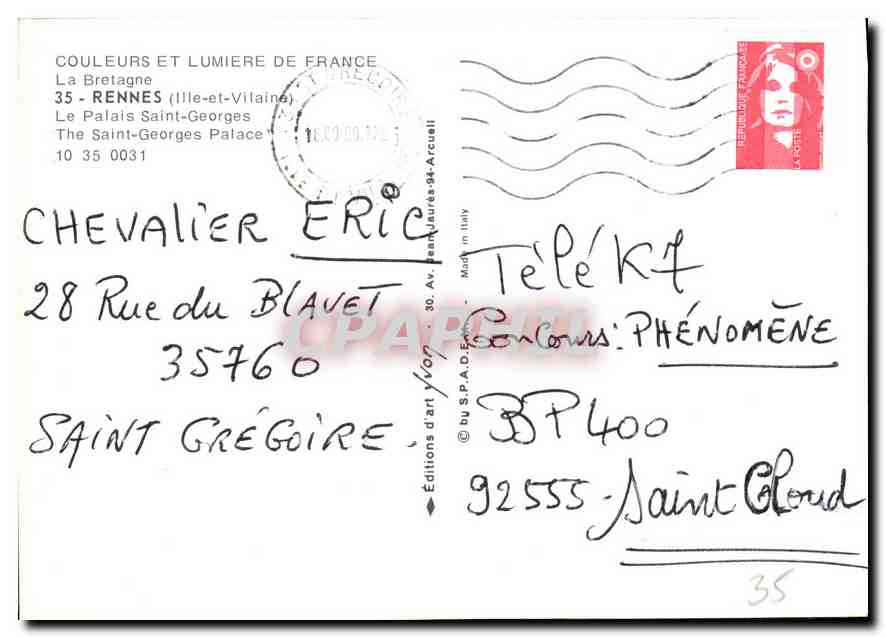 COULEURS ET LUMIERE DE FRANCE
La Bretagne
35 - RENNES (Ille-et-Vilaine)
Le Palais Saint-Georges
The Saint-Georges Palace
10 35 0031
RÉPUBLIQUE FRANÇAISE
LA POSTE
CHEVALIER ERIC
28 Rue du BLAVET
35760
SAINT GRÉGOIRE.
Éditions d'art Yvon - 30. Av. Jean Jaurès-94-Arcueil
© by S.P.A.D.E.M.
Made in Italy
CPAPHIL
Télé K7
Concours: PHÉNOMÈNE
BP 400
92555 - Saint Cloud
35